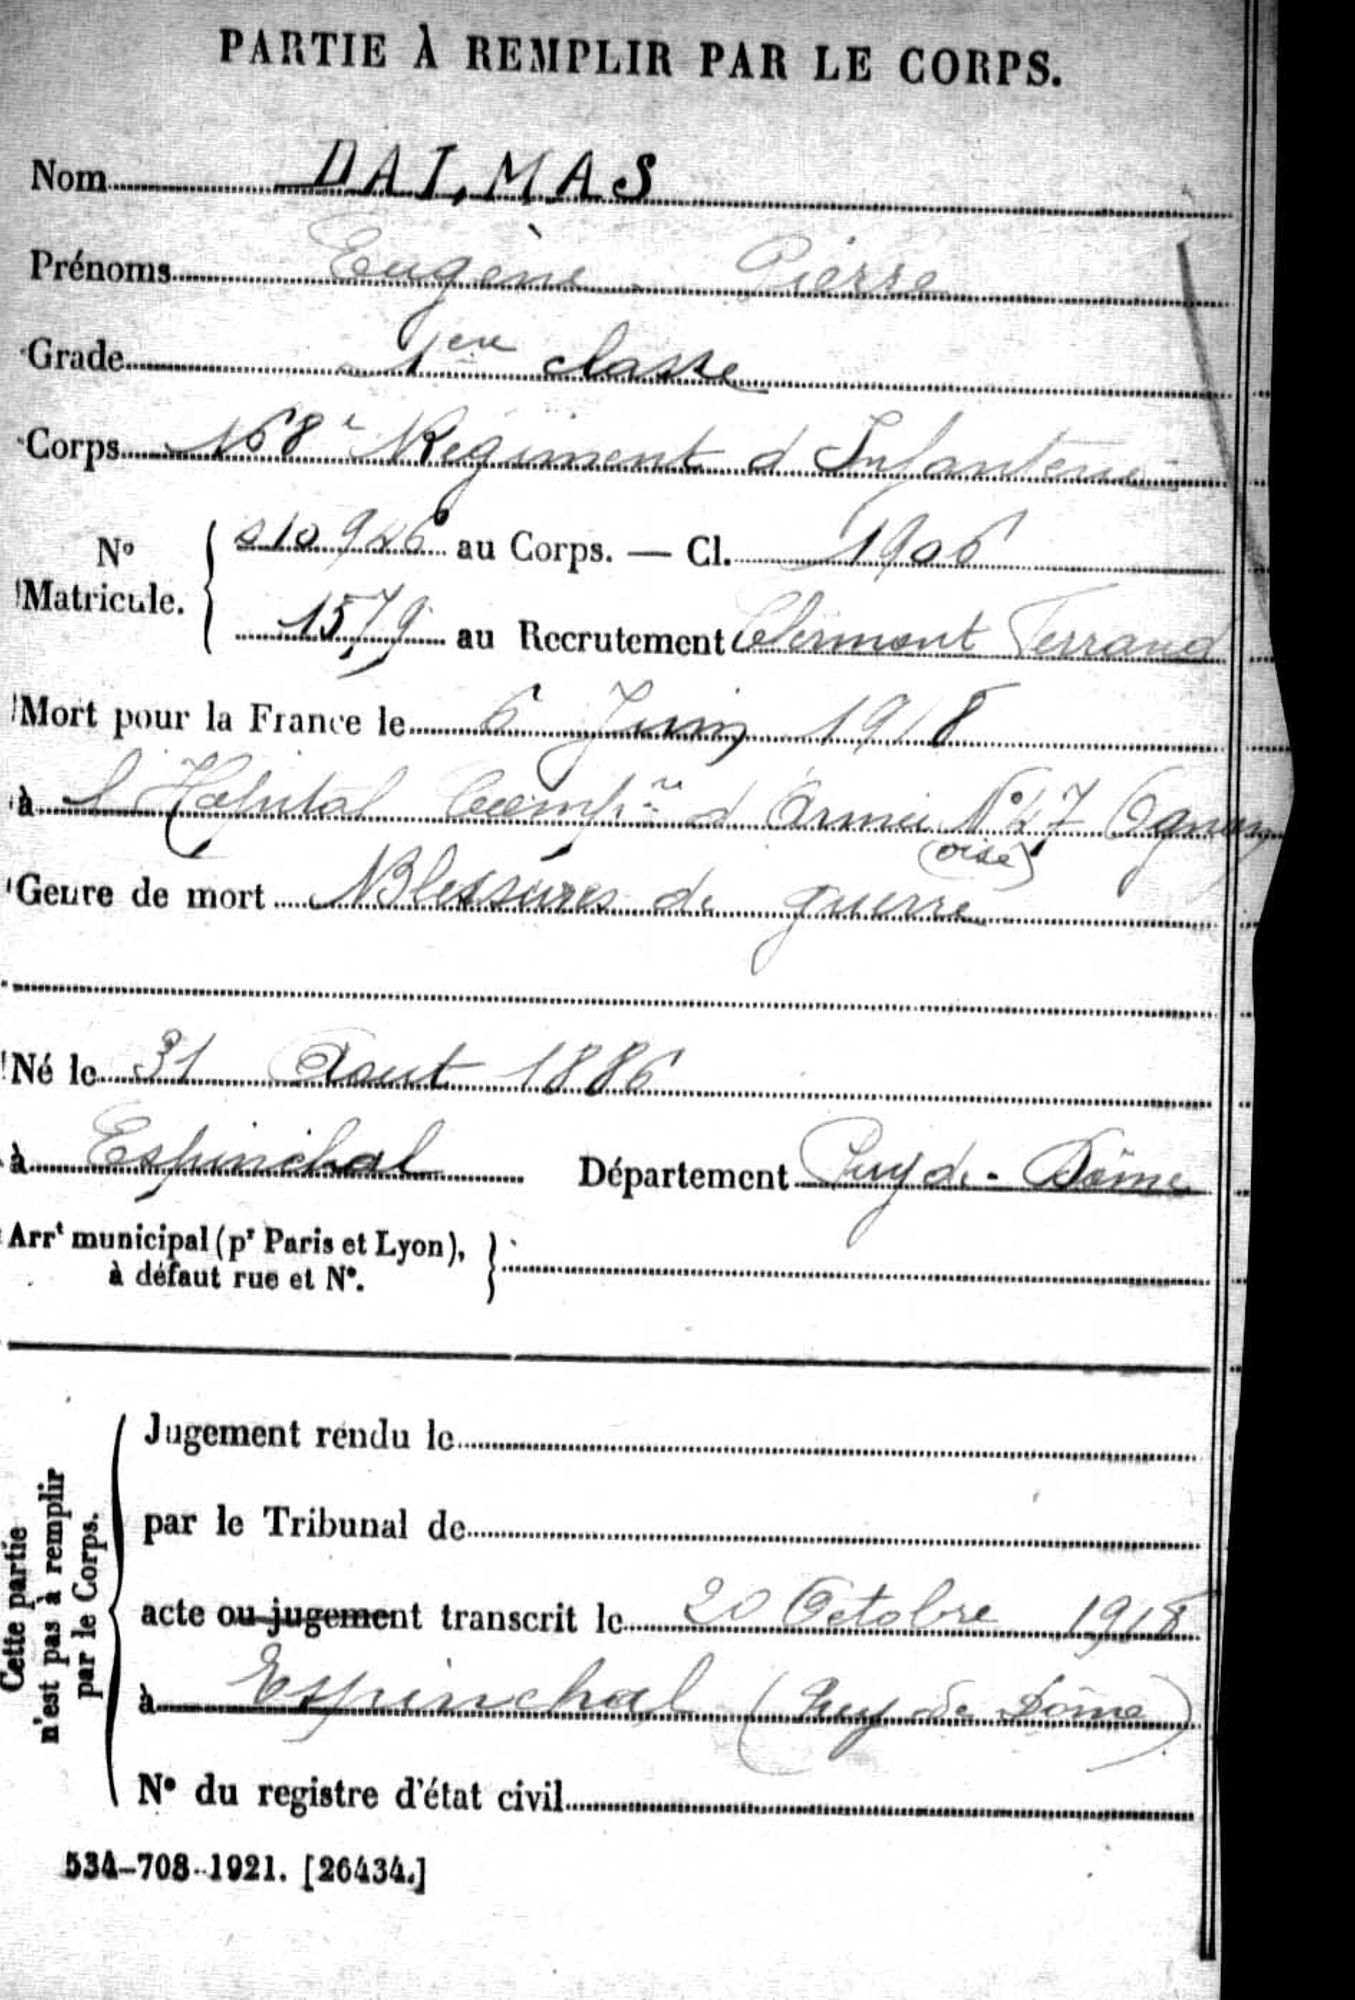 PARTIE À REMPLIR PAR LE CORPS.
Nom DALMAS
Prénoms Eugène Pierre
Grade 1ere classe
Corps 168e Régiment d Infanterie
No Matricule. 010926 au Corps. — Cl. 1906
1579 au Recrutement Clermont Ferrand
Mort pour la France le 6 Juin 1918
à l'Hôpital d'Armée No 47 Ognon
(oise)
Genre de mort Blessures de guerre
Né le 31 Aout 1886
à Espinchal Département Puy de - Dôme
Arrt municipal (pr Paris et Lyon),
à défaut rue et No.
Cette partie
n'est pas à remplir
par le Corps.
Jugement rendu le
par le Tribunal de
acte ou jugement transcrit le 20 Octobre 1918
à Espinchal (Puy de Dôme)
No du registre d'état civil
534-708-1921. [26434.]